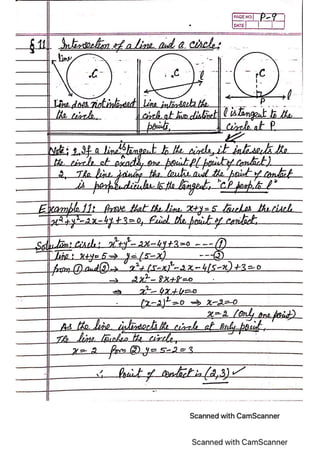 PAGE NO. P-9
DATE
§.11. Intersection of a line and a circle:
line
.C .C C
l
P l
Line does not intersect Line intersects the l is tangent to the
the circle. circle at two distinct circle at P.
points.
Note: 1. If a line is tangent to the circle, it intersects the
the circle at exactly one point P (point of contact)
2. The line joining the centre and the point of contact
is perpendicular to the tangent, "CP perp. to l"
Example 11: Prove that the line x+y=5 touches the circle
x²+y²-2x-4y+3=0, Find the point of contact.
Solution: Circle: x²+y²-2x-4y+3=0 --- ①
line: x+y=5 ⇒ y=(5-x) --- ②
from ① and ② → x²+(5-x)²-2x-4(5-x)+3=0
→ 2x²-8x+8=0
⇒ x²-4x+4=0
(x-2)²=0 ⇒ x-2=0
x=2 (only one point)
As the line intersects the circle at only point,
The line touches the circle,
x=2 from ② y=5-2=3
∴ Point of contact is (2,3)
Scanned with CamScanner
Scanned with CamScanner